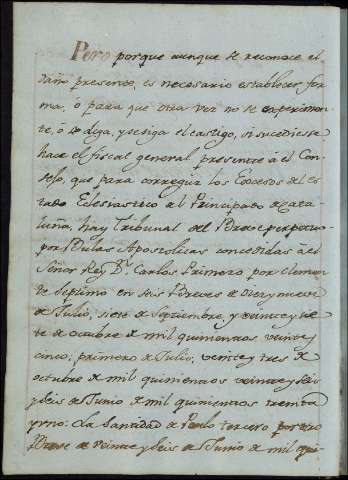 Pero porque aunque se reconoce el
daño presente, es necesario establecer for
ma, ó para que otra vez no se experimen
te, ó se diga, y se siga el castigo, si sucediese
hace el fiscal general presente á el Con
sejo, que para corregir los Excesos del es
tado Eclesiastico al Principado de Cata
luña, hay Tribunal del Breve perpetuo
por Bulas Apostolicas concedidas á el
Señor Rey Dn. Carlos Primero por Clemen
te Septimo en seis Breves de diez y nueve
de Julio, siete de Septiembre, y veinte y sie
te de octubre de mil quinientos veinte y
cinco; primero de Julio, veinte y tres de
octubre de mil quinientos veinte y seis
y seis de Junio de mil quinientos treinta
y uno: La Santidad de Paulo tercero por otro
Breve de veinte y seis de Junio de mil qui